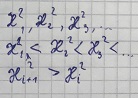 x₁², x₂², x₃², ...
x₁² < x₂² < x₃² < ...
x²ᵢ₊₁ > xᵢ²